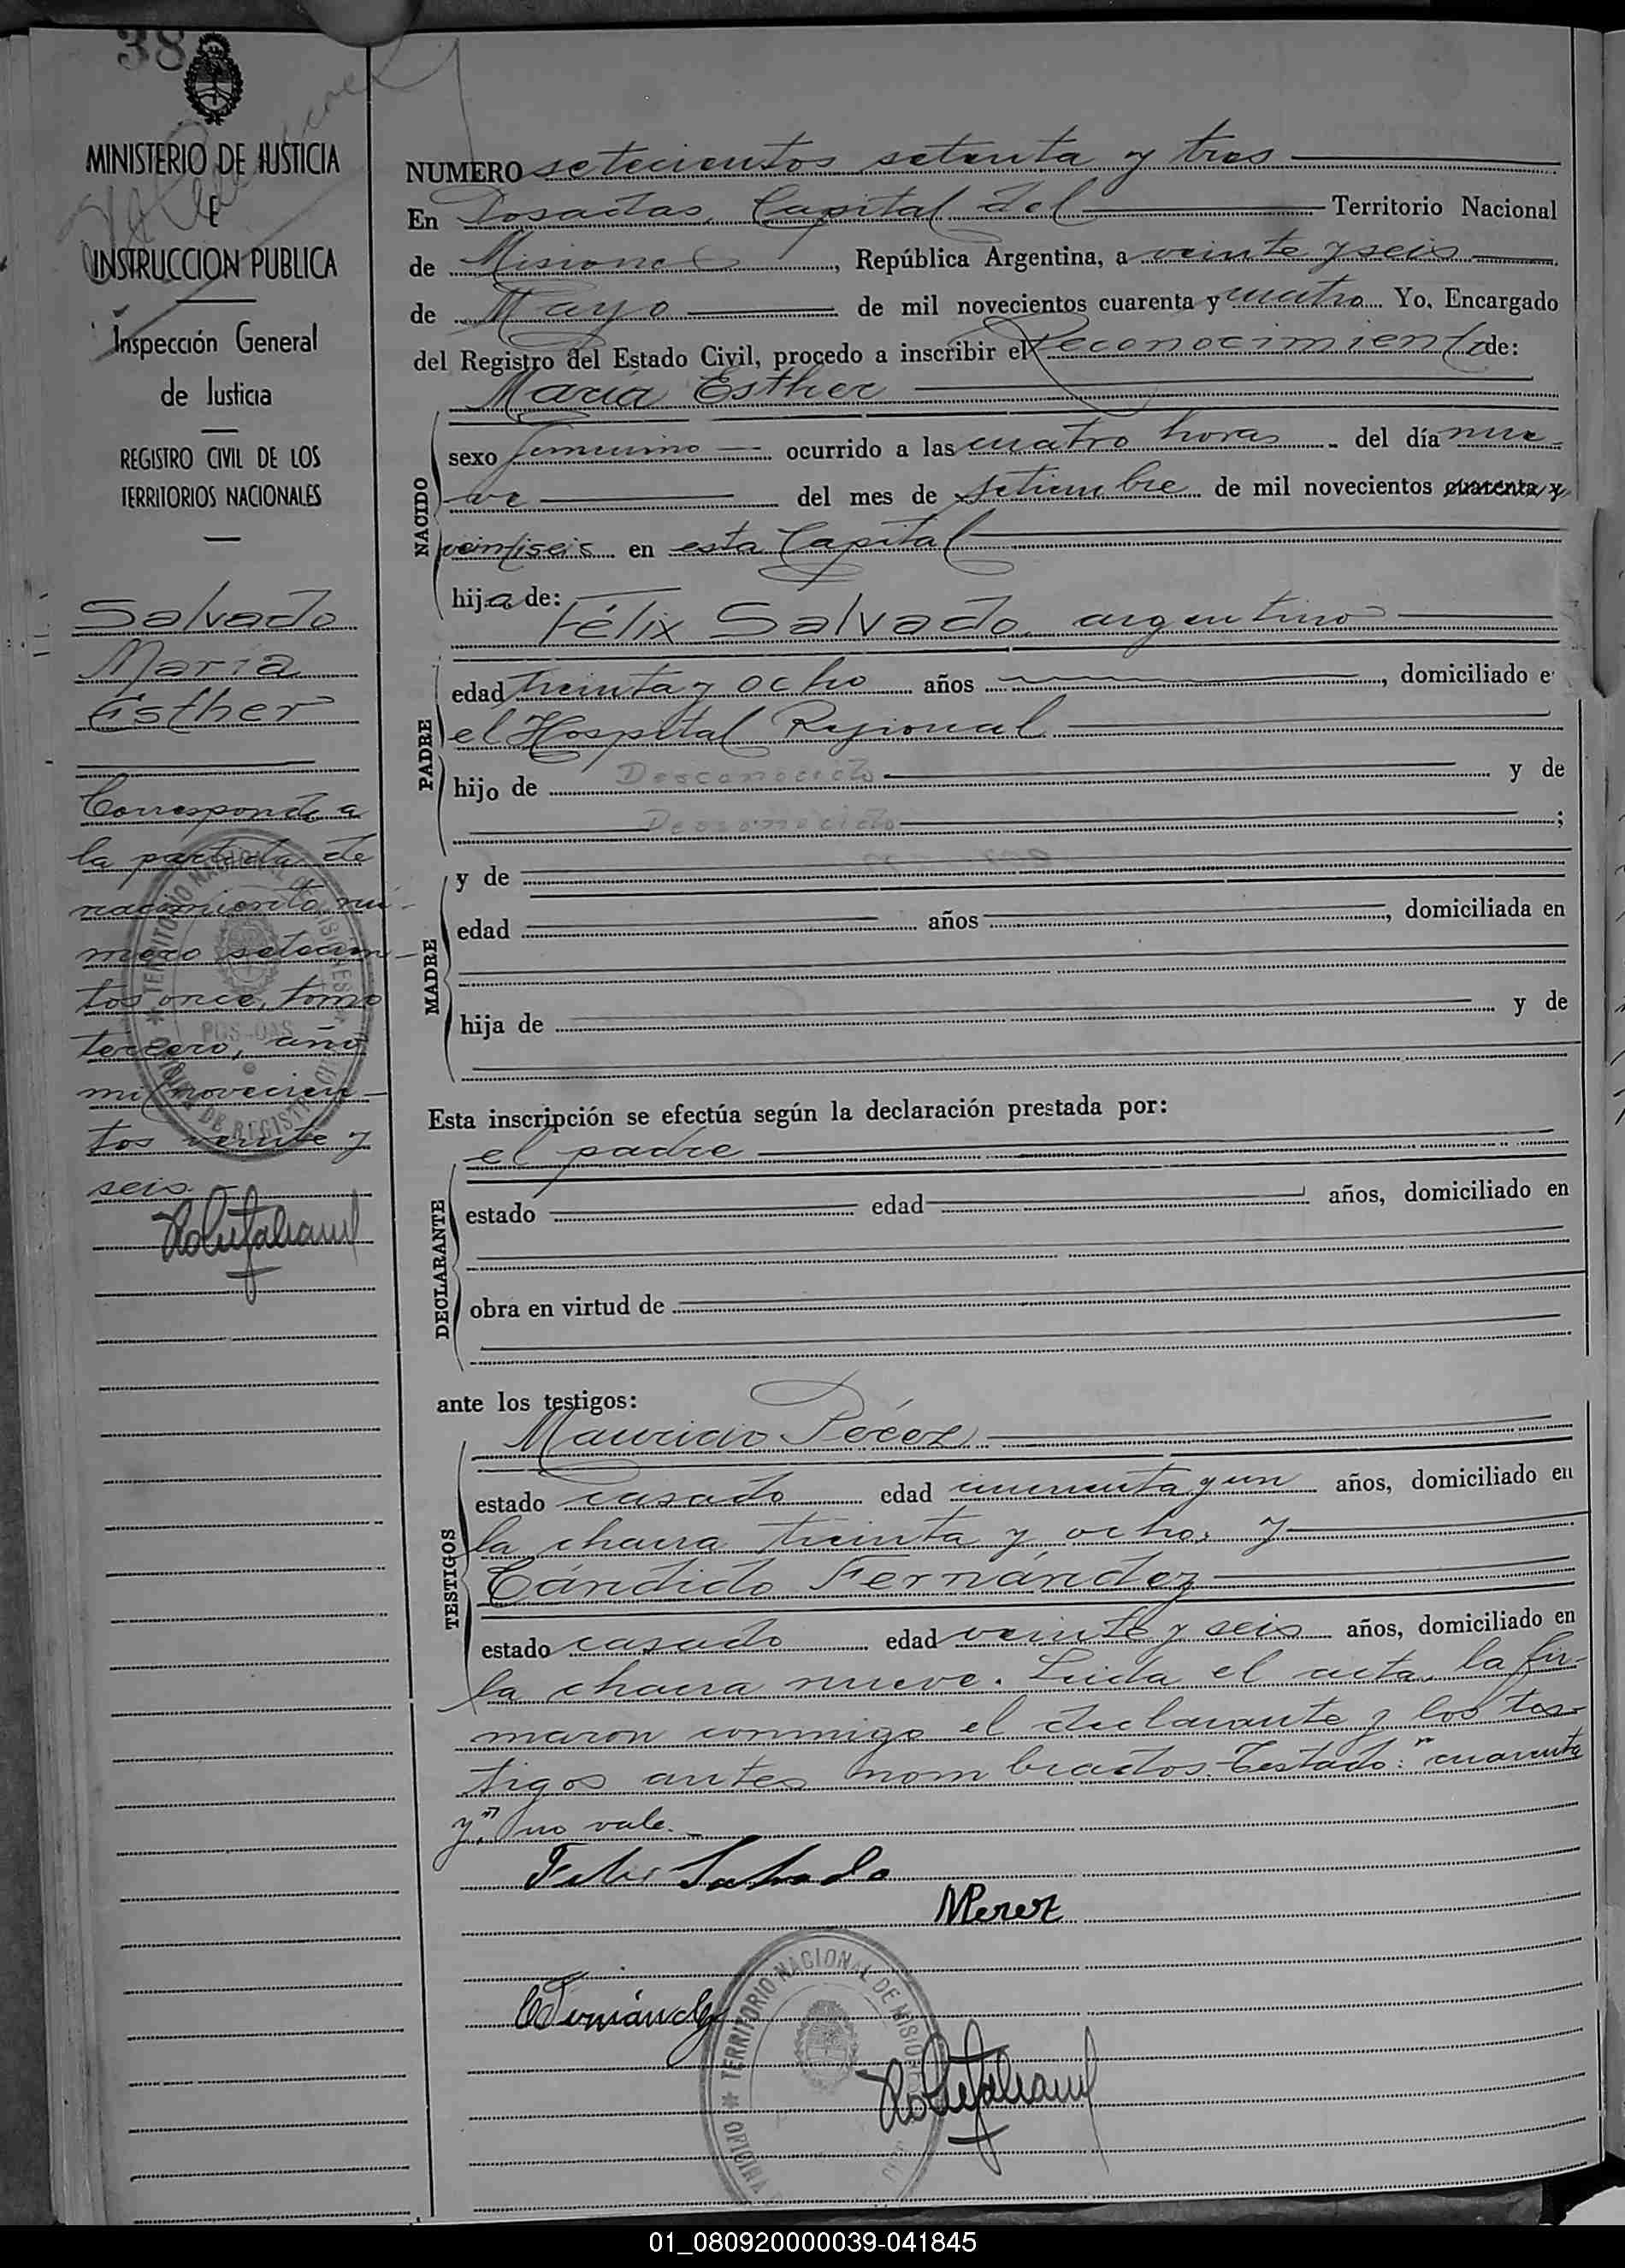 38
MINISTERIO DE JUSTICIA
E
INSTRUCCION PUBLICA
Inspección General
de Justicia
REGISTRO CIVIL DE LOS
TERRITORIOS NACIONALES
Salvado
María
Esther
Corresponde a
la partida de
nacimiento nú-
mero setecien-
tos once, tomo
tercero, año
mil novecien-
tos veinte y
seis.
NUMERO setecientos setenta y tres
En Posadas, Capital del Territorio Nacional
de Misiones, República Argentina, a veinte y seis
de Mayo de mil novecientos cuarenta y cuatro Yo, Encargado
del Registro del Estado Civil, procedo a inscribir el Reconocimiento de:
María Esther
NACIDO
sexo femenino ocurrido a las cuatro horas del día nue-
ve del mes de setiembre de mil novecientos cuarenta y
veintiseis en esta Capital
hija de:
Félix Salvado, argentino
PADRE
edad treinta y ocho años, domiciliado e
el Hospital Regional
hijo de Desconocido y de
Desconocido;
MADRE
y de
edad años, domiciliada en
hija de y de
Esta inscripción se efectúa según la declaración prestada por:
el padre
DECLARANTE
estado edad años, domiciliado en
obra en virtud de
ante los testigos:
TESTIGOS
Mauricio Pérez
estado casado edad cincuenta y un años, domiciliado en
la chacra treinta y ocho; y
Cándido Fernández
estado casado edad veinte y seis años, domiciliado en
la chacra nueve. Leída el acta, la fir-
maron conmigo el declarante y los tes-
tigos antes nombrados. Testado: "cuarenta
y" no vale.
Felix Salvado
MPerez
CFernández
TERRITORIO NACIONAL DE MISIONES
01_080920000039-041845